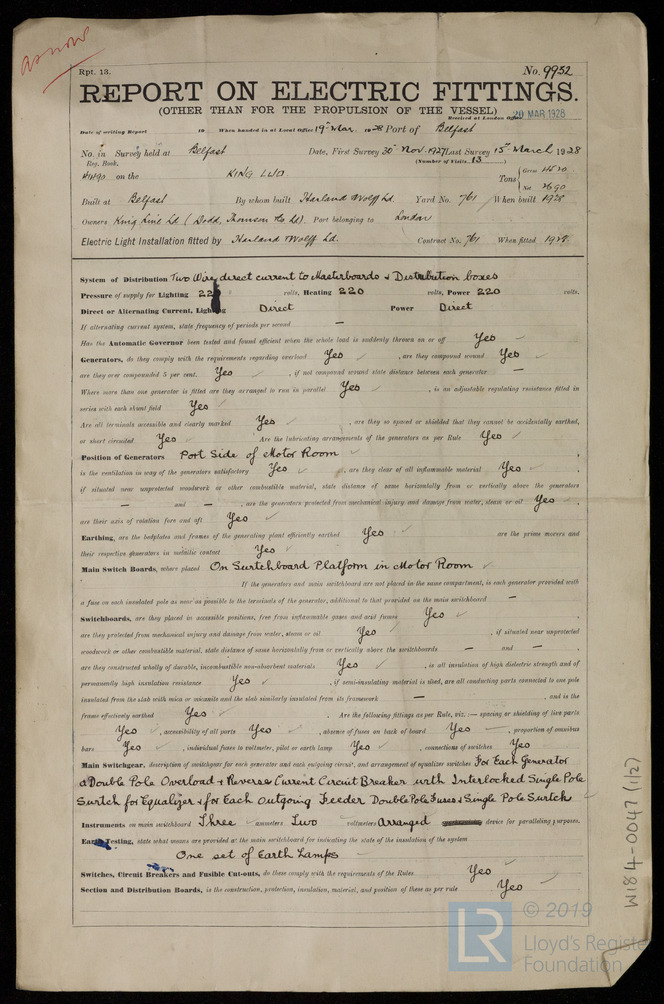 as now
Rpt. 13.
No. 9952
REPORT ON ELECTRIC FITTINGS.
(OTHER THAN FOR THE PROPULSION OF THE VESSEL)
Received at London Office 20 MAR 1928
Date of writing Report 19 When handed in at Local Office 19th Mar. 1928 Port of Belfast
No. in Survey held at Belfast Date, First Survey 30th Nov. 1927 Last Survey 15th March 1928
Reg. Book. (Number of Visits 13)
on the KING LUD Tons { Gross
Net
Built at Belfast By whom built Harland Wolff Ld. Yard No. 761 When built 1928
Owners King Line Ld (Dodd, Thomson & Co Ld) Port belonging to London
Electric Light Installation fitted by Harland Wolff Ld. Contract No. 761 When fitted 1928.
System of Distribution Two Wire, direct current to Masterboards & Distribution boxes
Pressure of supply for Lighting 220 volts, Heating 220 volts, Power 220 volts.
Direct or Alternating Current, Lighting Direct Power Direct
If alternating current system, state frequency of periods per second —
Has the Automatic Governor been tested and found efficient when the whole load is suddenly thrown on or off Yes
Generators, do they comply with the requirements regarding overload Yes, are they compound wound Yes
are they over compounded 5 per cent. Yes, if not compound wound state distance between each generator —
Where more than one generator is fitted are they arranged to run in parallel Yes, is an adjustable regulating resistance fitted in
series with each shunt field Yes
Are all terminals accessible and clearly marked Yes, are they so spaced or shielded that they cannot be accidentally earthed,
or short circuited Yes Are the lubricating arrangements of the generators as per Rule Yes
Position of Generators Port Side of Motor Room
is the ventilation in way of the generators satisfactory Yes, are they clear of all inflammable material Yes
if situated near unprotected woodwork or other combustible material, state distance of same horizontally from or vertically above the generators
— and —, are the generators protected from mechanical injury and damage from water, steam or oil Yes,
are their axis of rotation fore and aft Yes
Earthing, are the bedplates and frames of the generating plant efficiently earthed Yes are the prime movers and
their respective generators in metallic contact Yes
Main Switch Boards, where placed On Switchboard Platform in Motor Room
If the generators and main switchboard are not placed in the same compartment, is each generator provided with
a fuse on each insulated pole as near as possible to the terminals of the generator, additional to that provided on the main switchboard —
Switchboards, are they placed in accessible positions, free from inflammable gases and acid fumes Yes
are they protected from mechanical injury and damage from water, steam or oil Yes, if situated near unprotected
woodwork or other combustible material, state distance of same horizontally from or vertically above the switchboards — and —
are they constructed wholly of durable, incombustible non-absorbent materials Yes, is all insulation of high dielectric strength and of
permanently high insulation resistance Yes, if semi-insulating material is used, are all conducting parts connected to one pole
insulated from the slab with mica or micanite and the slab similarly insulated from its framework —, and is the
frame effectively earthed Yes. Are the following fittings as per Rule, viz. :— spacing or shielding of live parts
Yes, accessibility of all parts Yes, absence of fuses on back of board Yes, proportion of omnibus
bars Yes, individual fuses to voltmeter, pilot or earth lamp Yes, connections of switches Yes
Main Switchgear, description of switchgear for each generator and each outgoing circuit, and arrangement of equalizer switches For Each Generator
a Double Pole Overload & Reverse Current Circuit Breaker with Interlocked Single Pole
Switch for Equalizer & for Each Outgoing Feeder Double Pole Fuses & Single Pole Switch
Instruments on main switchboard Three ammeters Two voltmeters Arranged device for paralleling purposes.
Earth Testing, state what means are provided at the main switchboard for indicating the state of the insulation of the system
One set of Earth Lamps
Switches, Circuit Breakers and Fusible Cut-outs, do these comply with the requirements of the Rules Yes
Section and Distribution Boards, is the construction, protection, insulation, material, and position of these as per rule Yes
W184-0047 (1/2)
LR
© 2019
Lloyd's Registe
Foundation